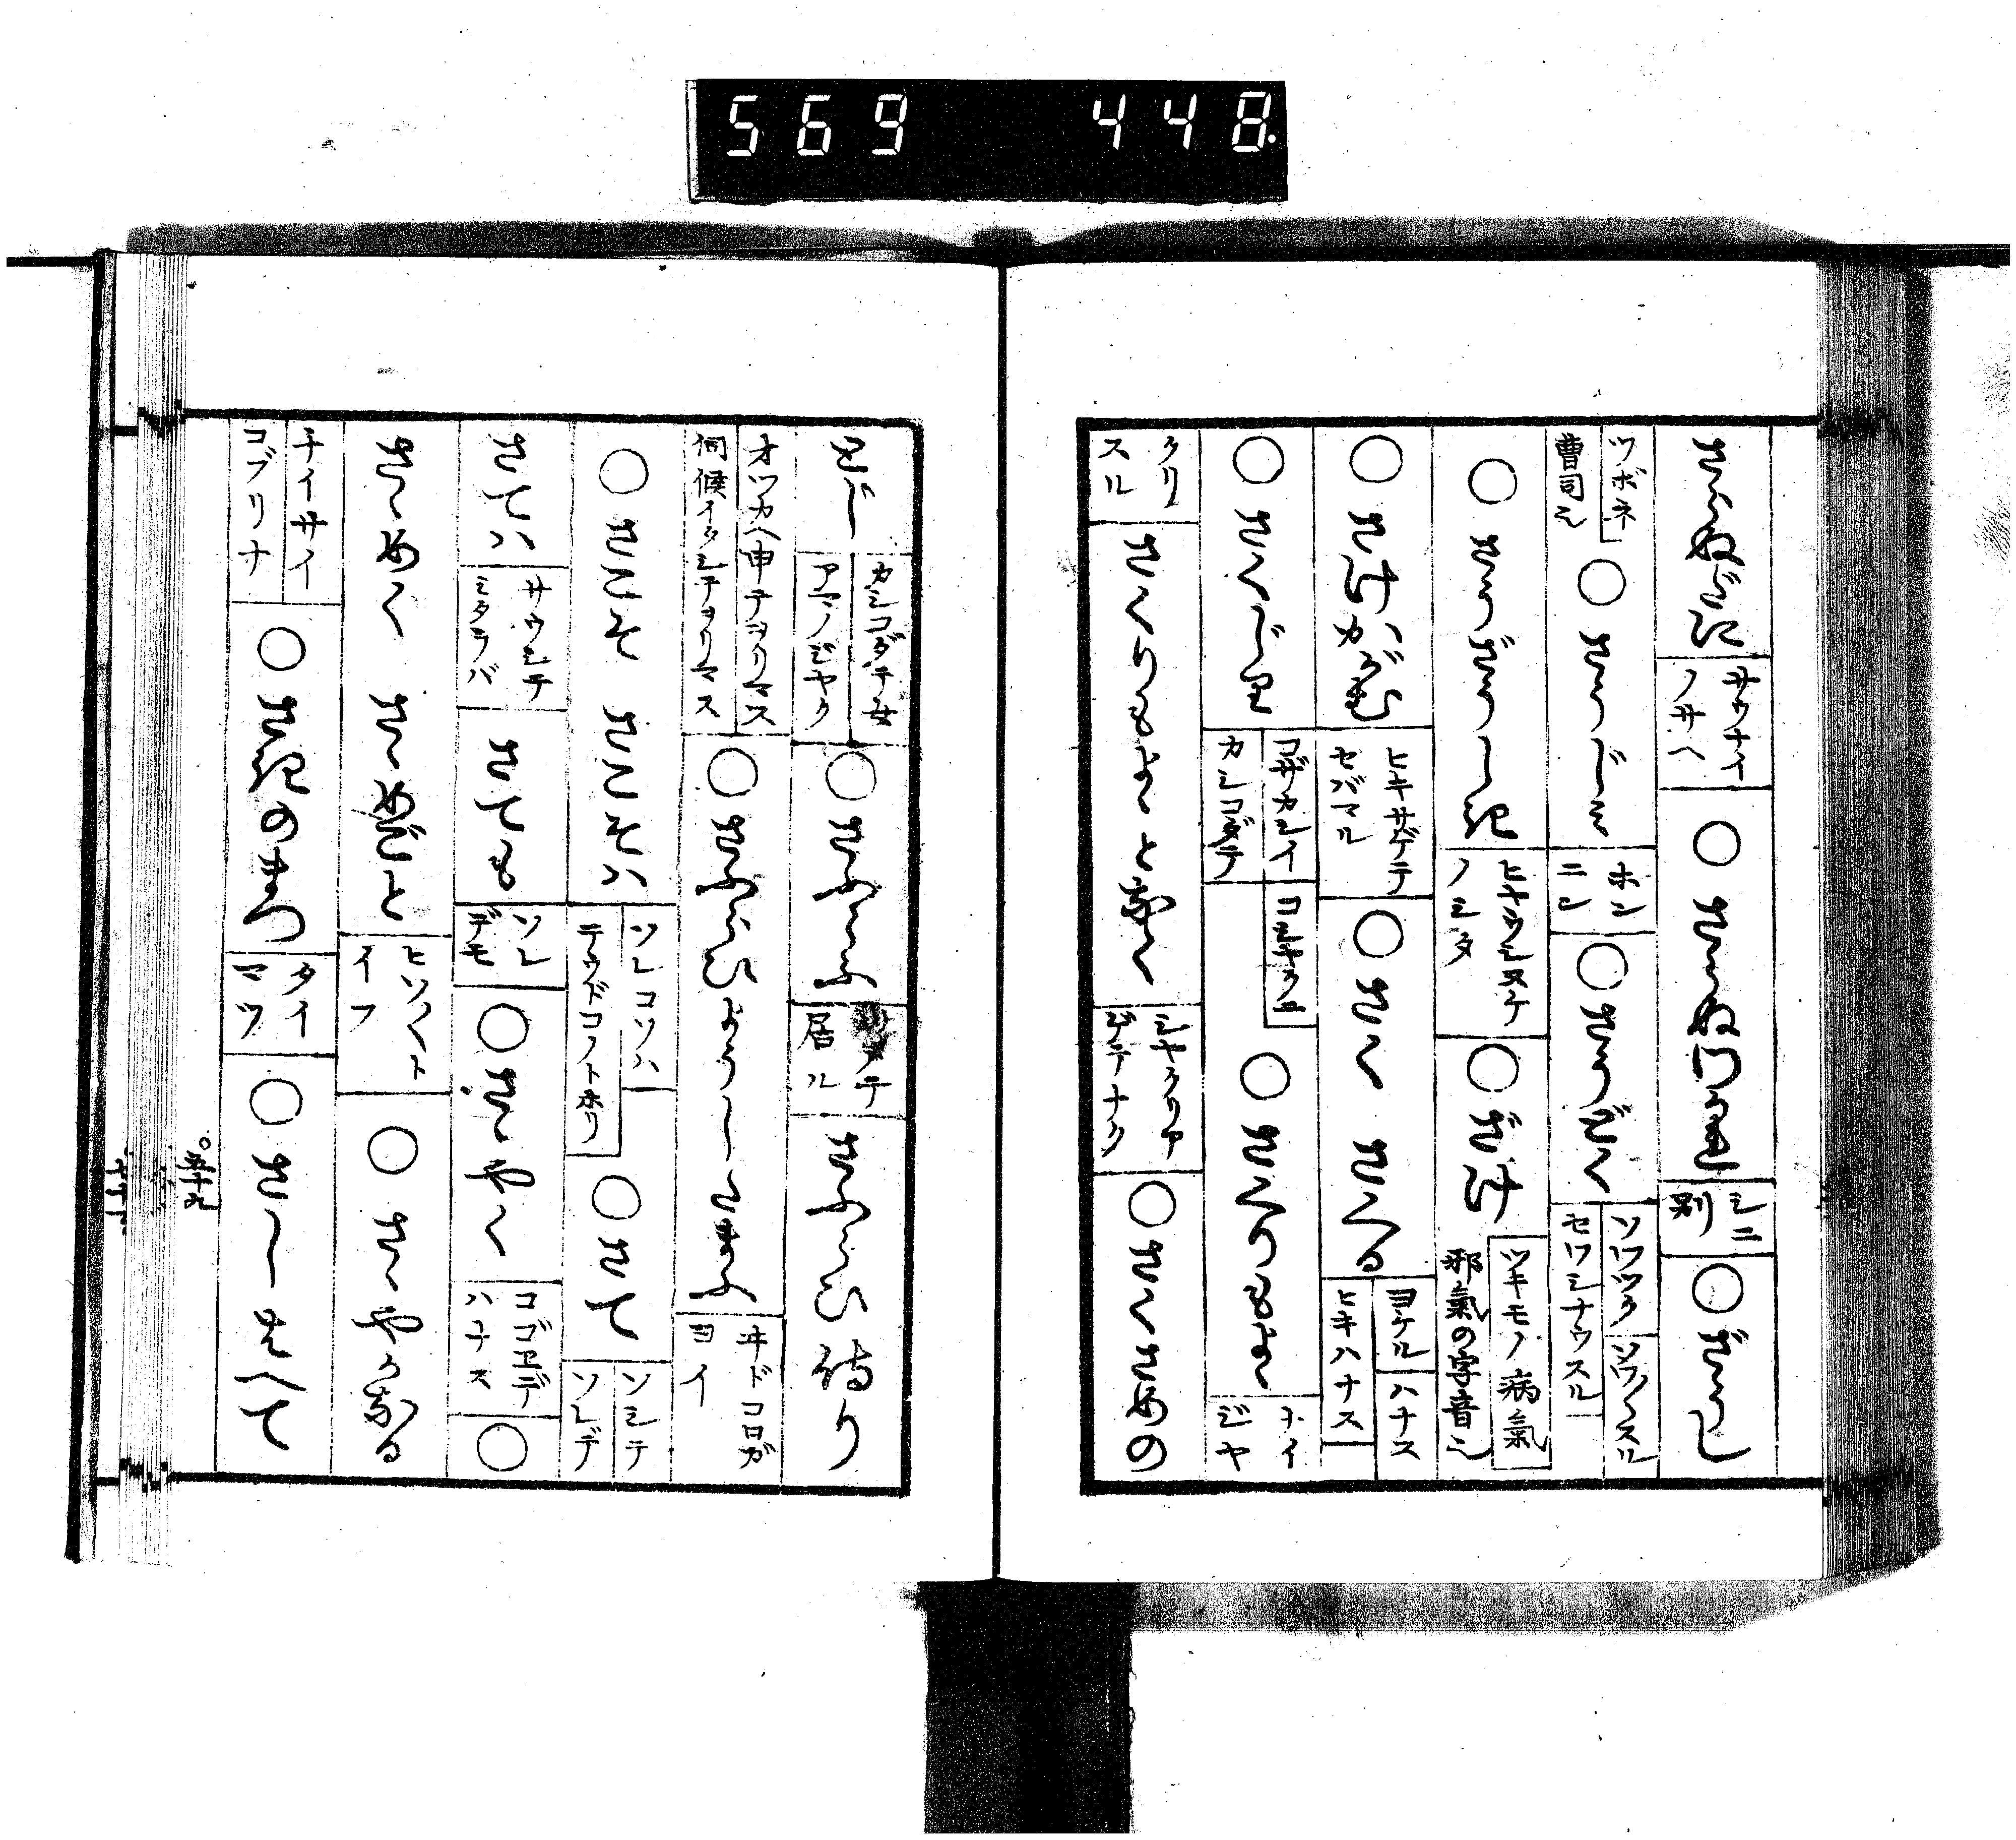 569 448
さらぬだに サウナイ ノサヘ ○ さらぬわかれ シニ 別 ○ ざうし
ツボネ 曹司也 ○ さうじみ ホン ニン ○ さうどく ソウツク ソワ〳〵スル セワシナウスル
○ さうざうしき ヒヤウシヌケ ノシタ ○ ざけ ツキモノ 病氣 邪氣の字音也
○ さけハかがむ ヒキサゲテ セバマル ○ さく さくる ヨケル ハナス ヒキハナス
○ さくじり コザカシイ カシコダテ ○ さくりもよゝ ナイ ジヤ
クリ スル さくりもよゝと泣く シヤクリア ゲテナク ○ さくさめの
とじ カシコダテ女 アマノジヤク ○ さふらふ 居ル さふらひ侍り
オツカヘ申テヲリマス 伺候イタシテヲリマス ○ さふらひようしたまふ ヰドコロガ ヨイ
○ さこそ さこそハ ソレコソハ テウドコノトホリ ○ さて ソシテ ソレデ
さてハ サウシテ ミタラバ さても ソレ デモ ○ さゝやく コゴヱデ ハナス ○
さゝめく さゝめごと ヒソ〳〵ト イフ ○ さゝやかなる
チイサイ コブリナ ○ さきのまつ タイ マツ ○ さしもへて
○五十九